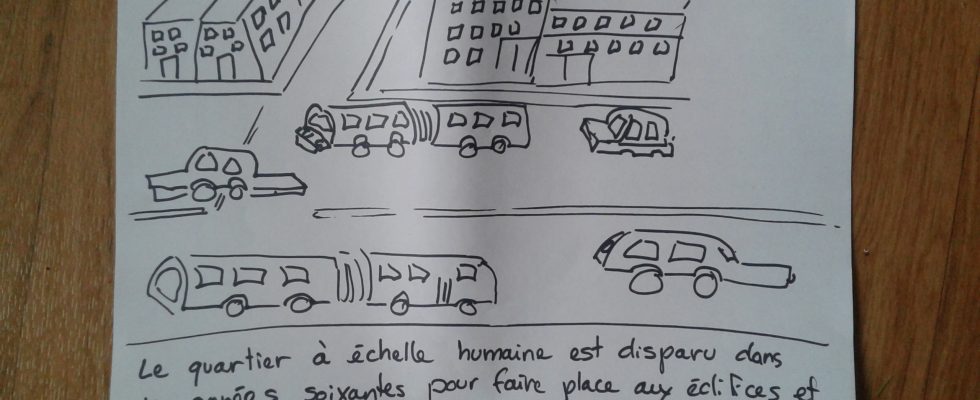 Le quartier à échelle humaine est disparu dans
années soixantes pour faire place aux éclifices et